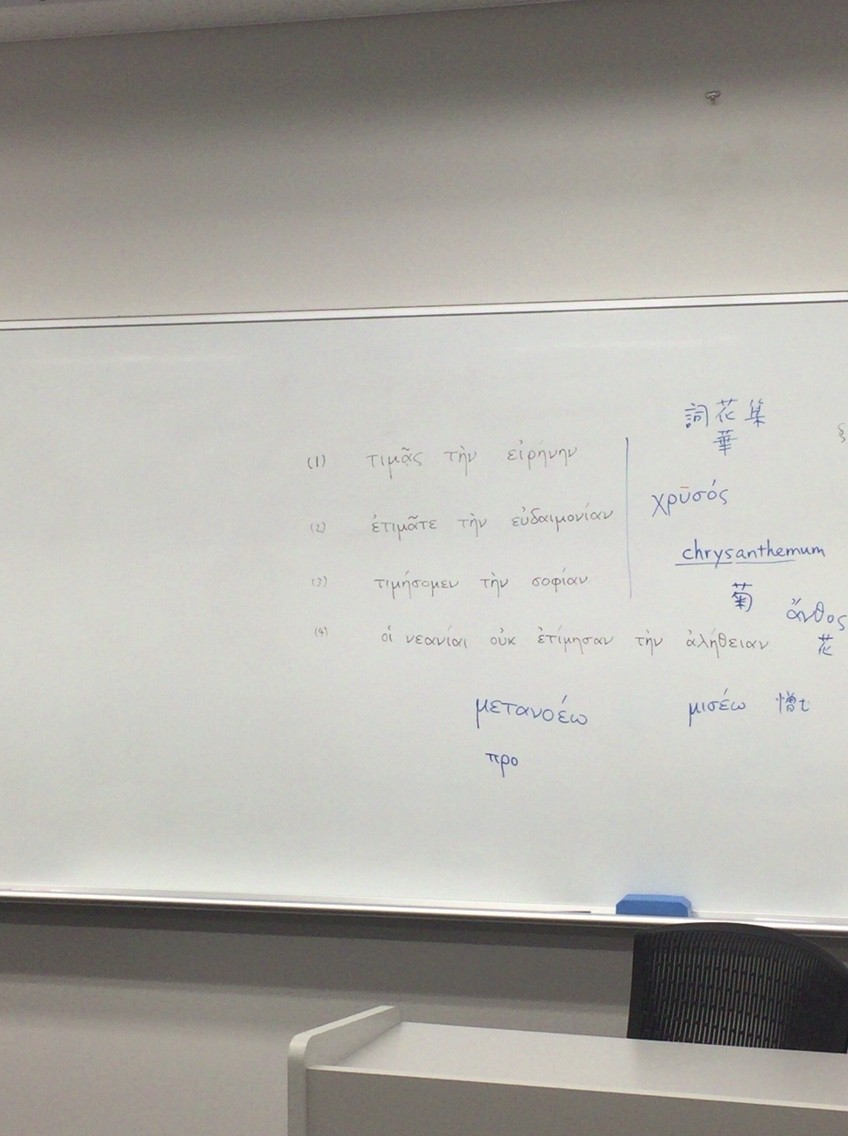 (1) τιμᾷς τὴν εἰρήνην
(2) ἐτιμᾶτε τὴν εὐδαιμονίαν
(3) τιμήσομεν τὴν σοφίαν
(4) οἱ νεανίαι οὐκ ἐτίμησαν τὴν ἀλήθειαν
μετανοέω
προ
詞花集
華
χρῡσός
chrysanthemum
菊
ἄνθος
花
μισέω 憎む